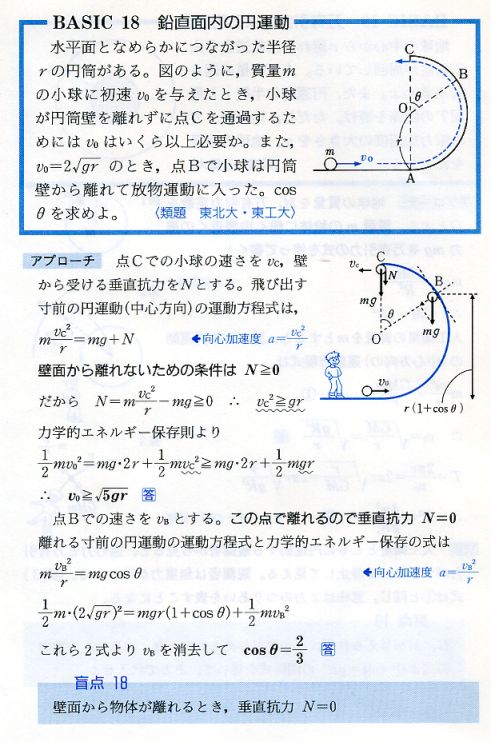 BASIC 18 鉛直面内の円運動
水平面となめらかにつながった半径
rの円筒がある。図のように，質量m
の小球に初速 v₀ を与えたとき，小球
が円筒壁を離れずに点Cを通過するた
めには v₀ はいくら以上必要か。また，
v₀=2√gr のとき，点Bで小球は円筒
壁から離れて放物運動に入った。cos
θ を求めよ。 〈類題 東北大・東工大〉
C
B
θ
O
r
m
v₀
A
アプローチ 点Cでの小球の速さを v_C, 壁
から受ける垂直抗力をNとする。飛び出す
寸前の円運動(中心方向)の運動方程式は，
m v_C²/r = mg+N ←向心加速度 a= v_C²/r
壁面から離れないための条件は N≧0
だから N=m v_C²/r −mg≧0 ∴ v_C²≧gr
力学的エネルギー保存則より
1/2 mv₀²=mg·2r+ 1/2 mv_C²≧mg·2r+ 1/2 mgr
∴ v₀≧√5gr 答
v_C
C
N
mg
B
θ
mg
O
v₀
r(1+cos θ)
点Bでの速さを v_B とする。この点で離れるので垂直抗力 N=0
離れる寸前の円運動の運動方程式と力学的エネルギー保存の式は
m v_B²/r = mg cos θ ←向心加速度 a= v_B²/r
1/2 m·(2√gr)²=mgr(1+cos θ)+ 1/2 mv_B²
これら2式より v_B を消去して cos θ= 2/3 答
盲点 18
壁面から物体が離れるとき，垂直抗力 N=0